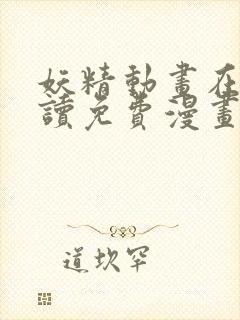 妖精動畫在
讀免費漫畫
道坎罕